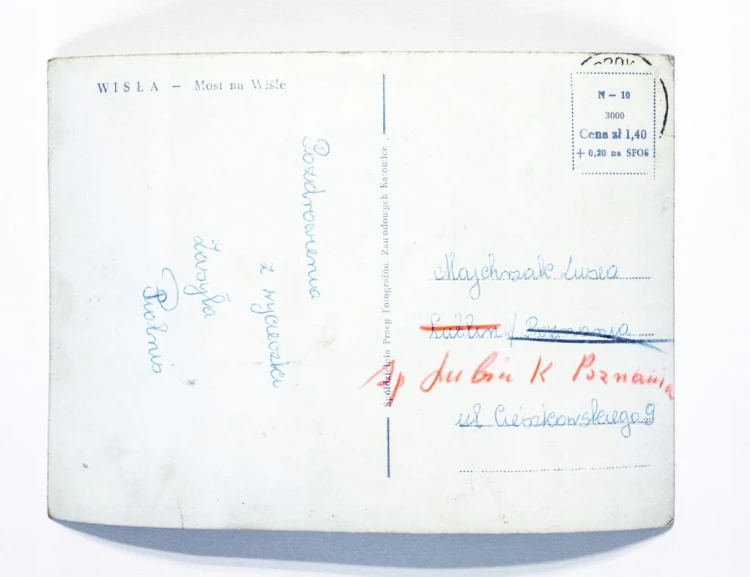 WISŁA — Most na Wiśle
Pozdrowienia
z wycieczki
Zasyła
Piotruś
Spółdzielnia Pracy Fotografów Zawodowych Katowice
N — 10
3000
Cena zł 1,40
+ 0,20 na SFOS
Majchrzak Luseo
Lublin k/ Poznania
Lubin K Poznania
ul Cieszkowskiego 9